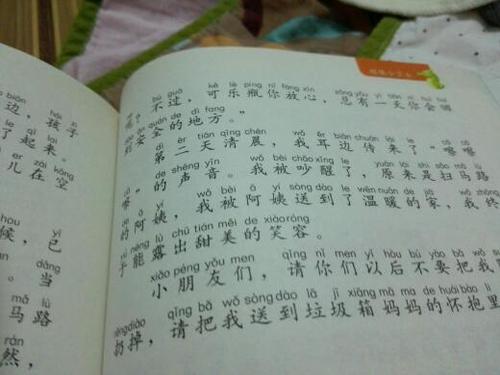 biān hái zi
边，孩子
le qǐ lai
了起来。
ér zài kōng
儿在空
hou yǐ
候，已
dāng
。当
mǎ lù
马路
rán
然，
bú guò kě lè píng nǐ fàng xīn zǒng yǒu yì tiān nǐ huì huí
不过，可乐瓶你放心，总有一天你会回
dào ān quán de dì fang
到安全的地方。”
dì èr tiān qīng chén wǒ ěr biān chuán lái le
第二天清晨，我耳边传来了“唰唰
de shēng yīn wǒ bèi chǎo xǐng le yuán lái shì sǎo mǎ lù
唰”的声音。我被吵醒了，原来是扫马路
de ā yí wǒ bèi ā yí sòng dào le wēn nuǎn de jiā wǒ
的阿姨，我被阿姨送到了温暖的家，我终
yú néng lù chū tián měi de xiào róng
于能露出甜美的笑容。
xiǎo péng yǒu men qǐng nǐ men yǐ hòu bú yào bǎ wǒ
小朋友们，请你们以后不要把我
rēng diào qǐng bǎ wǒ sòng dào lā jī xiāng mā ma de huái bào lǐ
扔掉，请把我送到垃圾箱妈妈的怀抱里